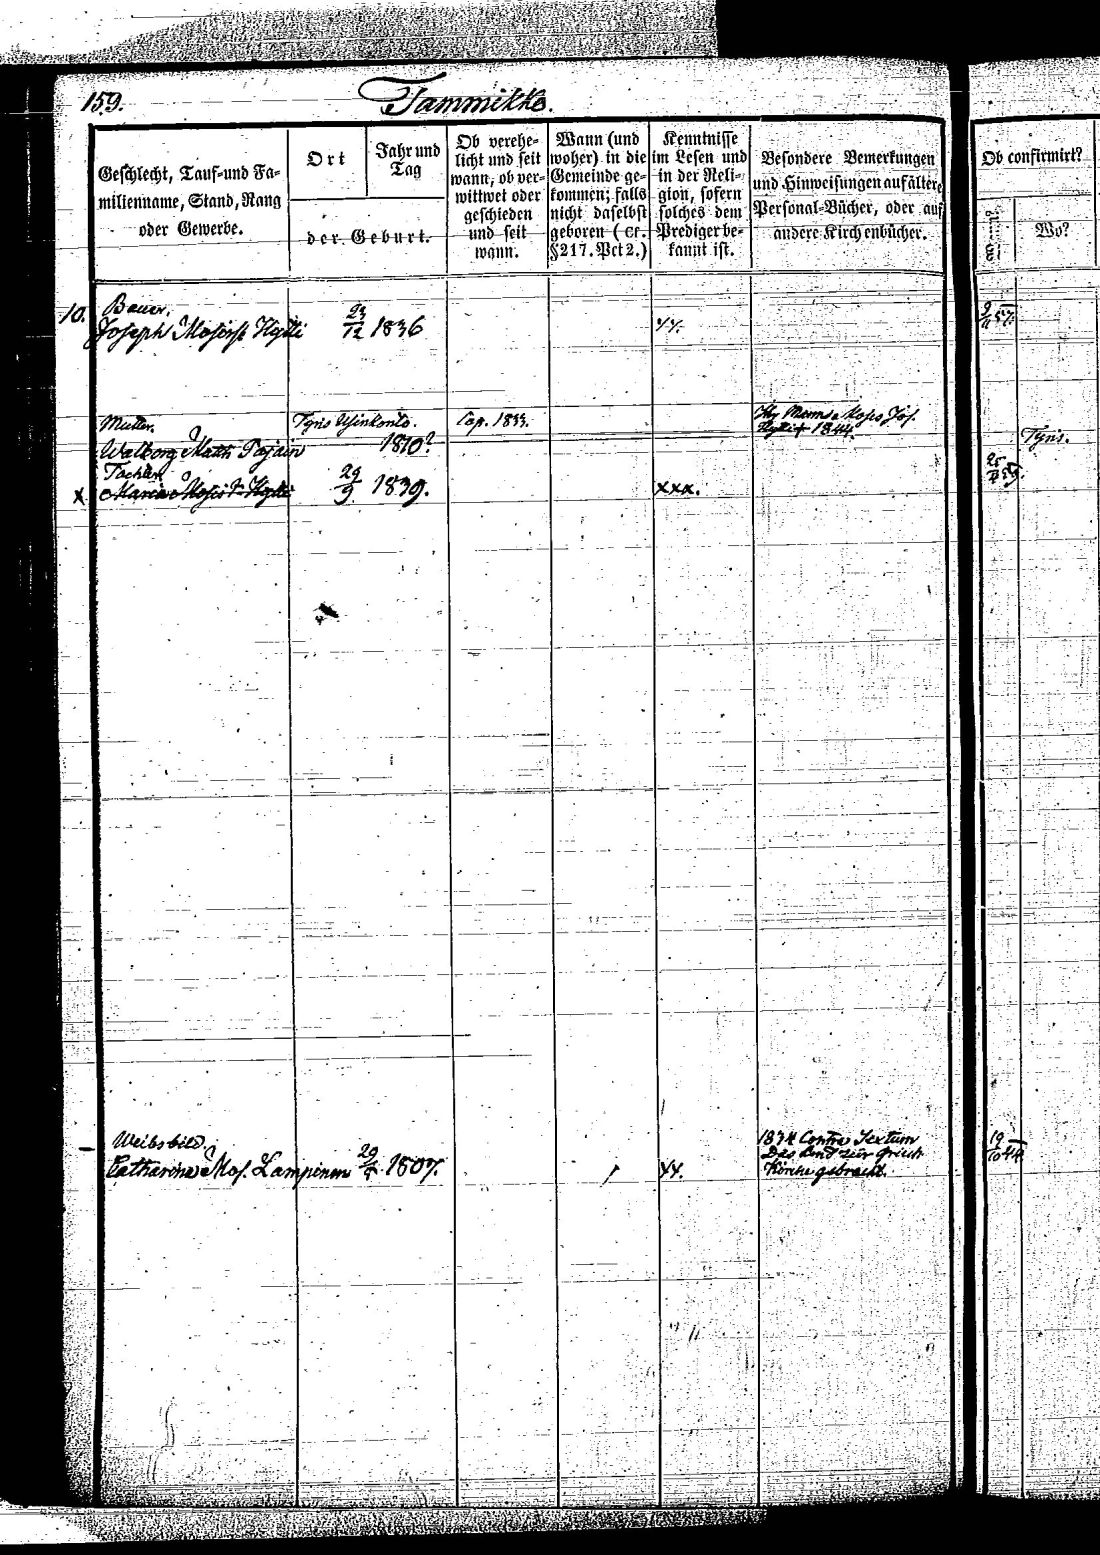 159.
Tammikko.
Geschlecht, Tauf- und Fa-
milienname, Stand, Rang
oder Gewerbe.
Ort
Jahr und
Tag
der Geburt.
Ob verehe-
licht und seit
wann, ob ver-
wittwet oder
geschieden
und seit
wann.
Wann (und
woher) in die
Gemeinde ge-
kommen; falls
nicht daselbst
geboren (cr.
§217. Pct 2.)
Kenntnisse
im Lesen und
in der Reli-
gion, sofern
solches dem
Prediger be-
kannt ist.
Besondere Bemerkungen
und Hinweisungen auf ältere
Personal-Bücher, oder auf
andere Kirchenbücher.
Ob confirmirt?
Wo?
10. Bauer.
Joseph 23/12 1836
Mutter. Tyris Cap. 1833.
Walborg Math. Pajain 1810? 1844. Tyris.
Tochter
x Maria 29/9 1839. xxx.
Weibsbild.
Catharina Mos. Lampinen 29/5 1807. xx.
1834 Contra Sextum
Das Kind zur griech
Kirche gebracht.
19/10 44